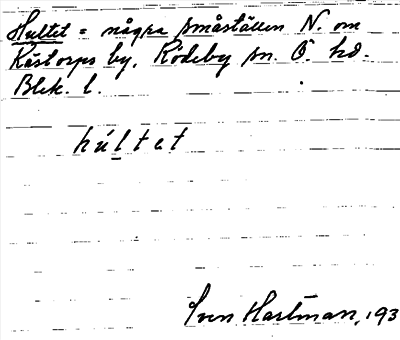 Hultet = några småställen N. om
Kåstorps by, Rödeby sn. Ö. hd.
Blek. l.
húltet
Sven Hartman, 193